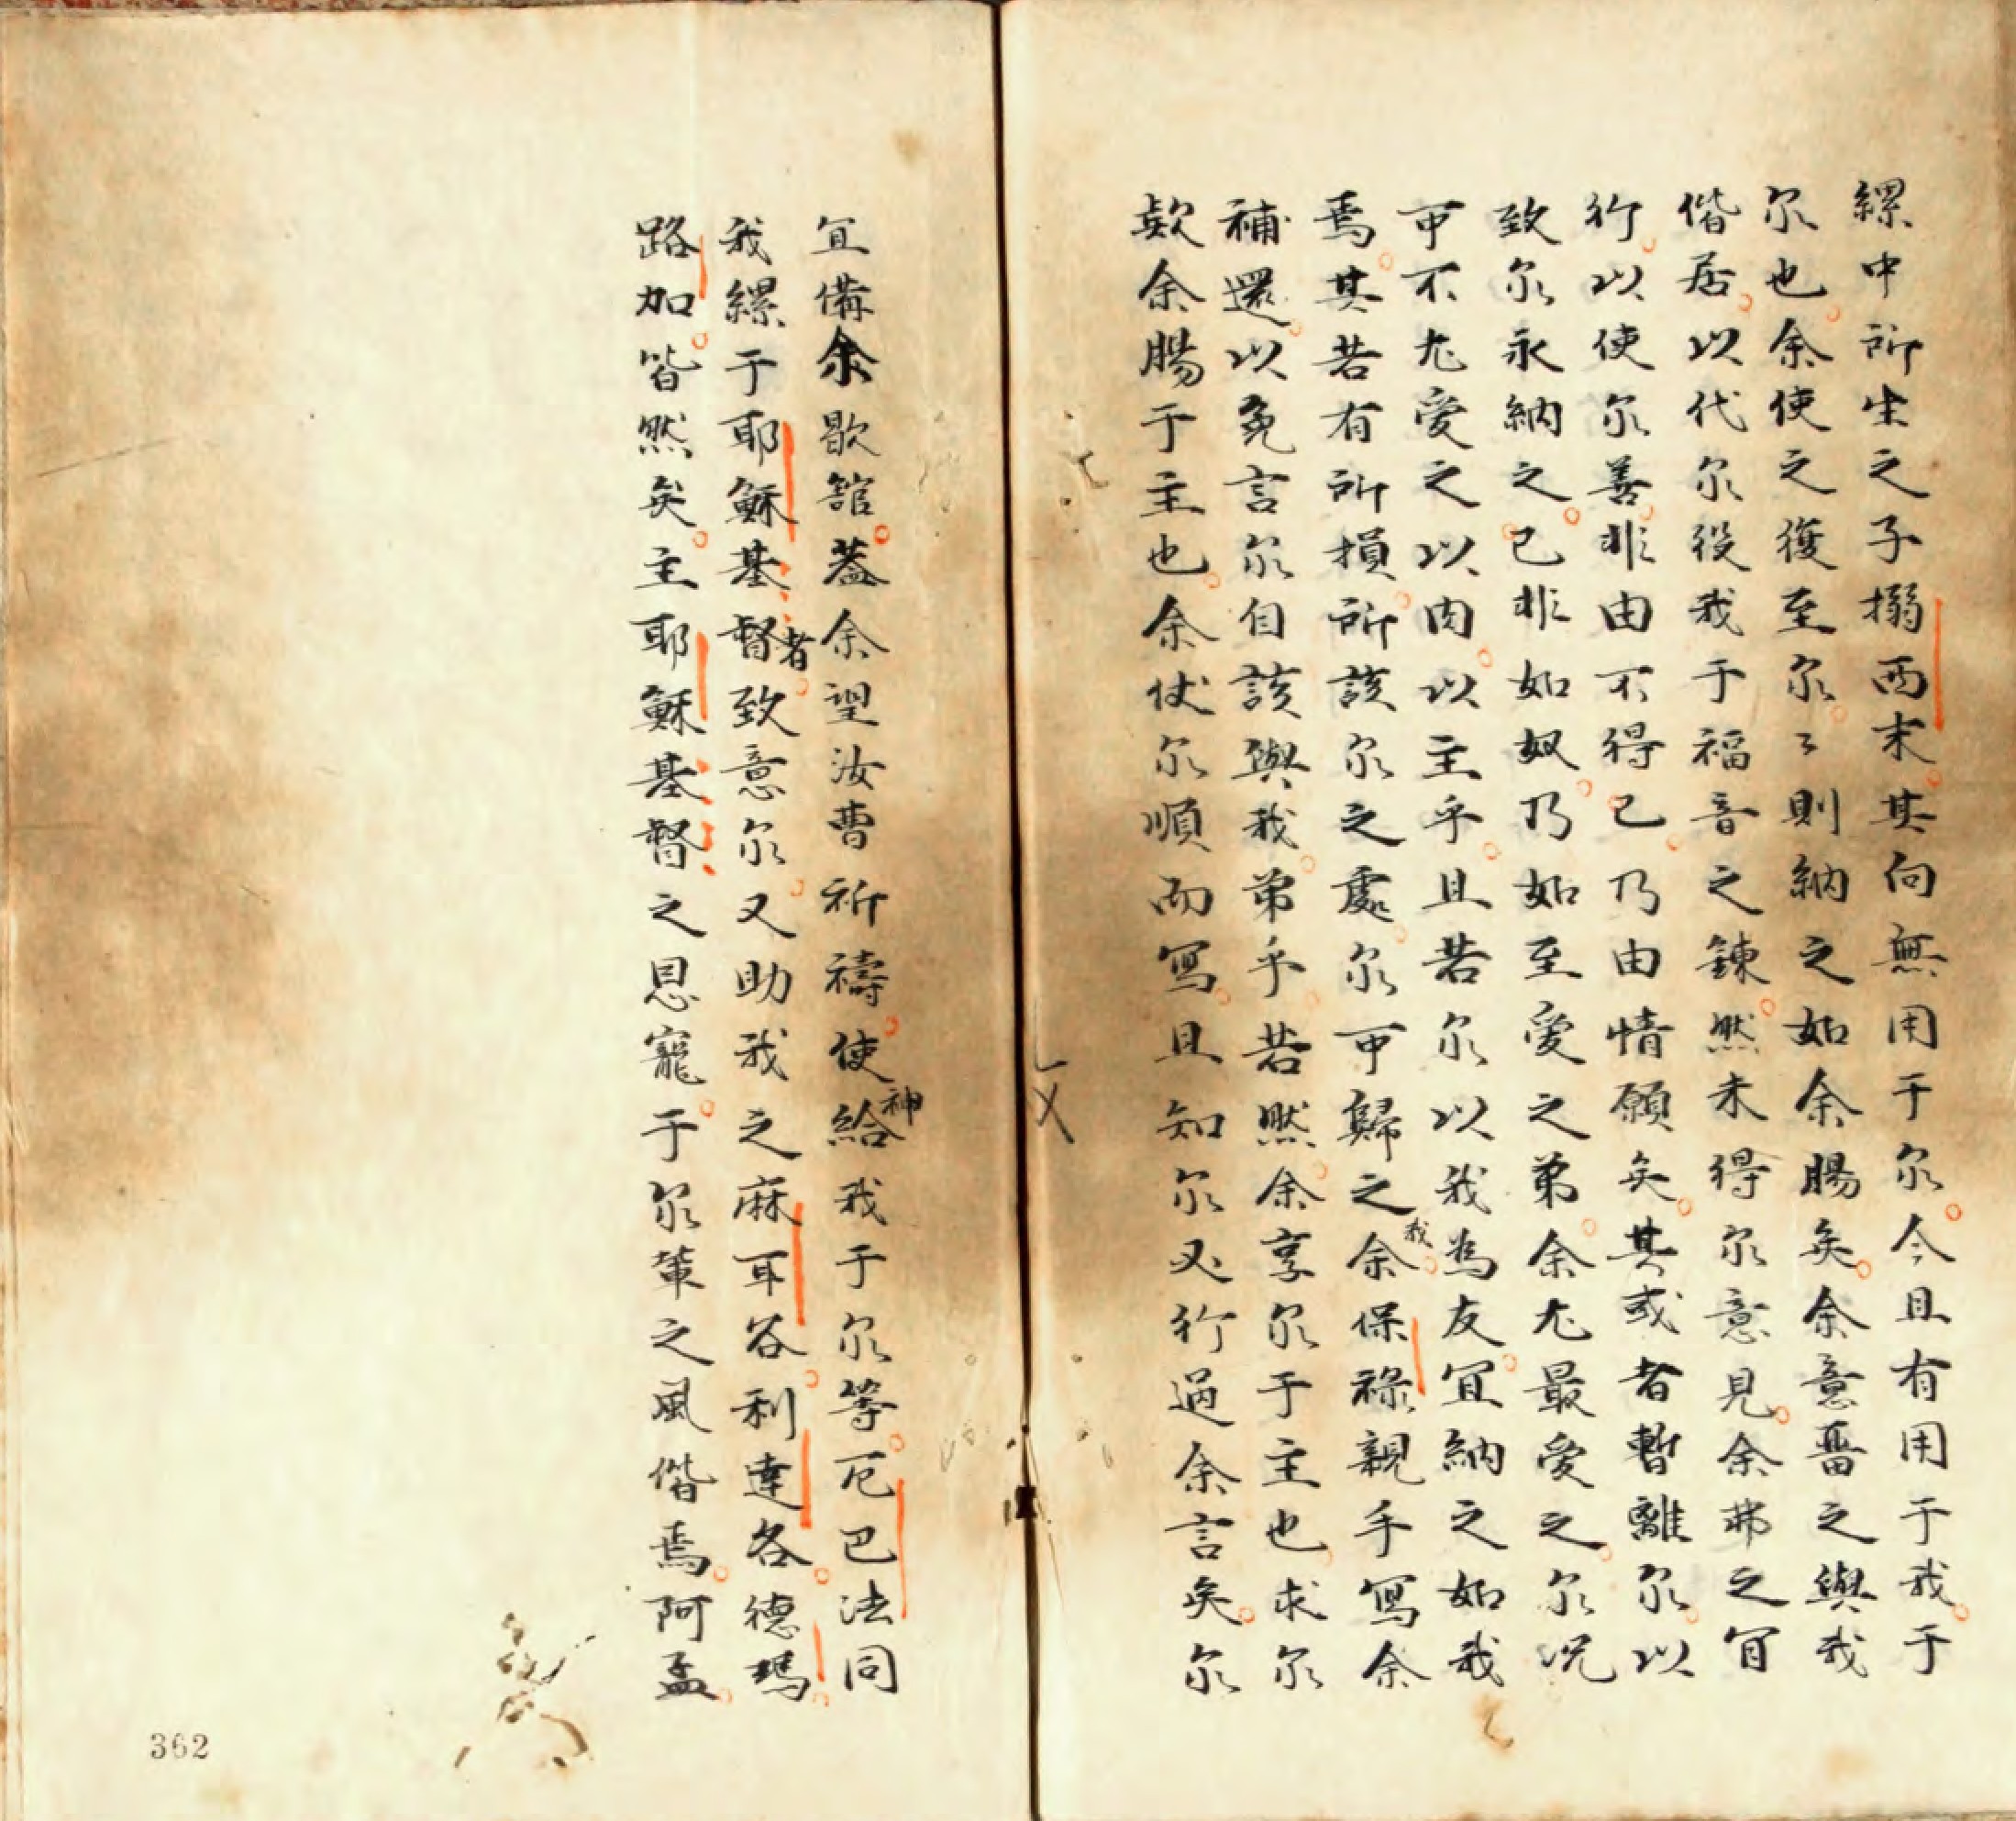 縲中所生之子搦西末其向無用于尔今且有用于我于
尔也余使之獲至尔〻則納之如余腸矣余意畱之與我
偕居以代尔役我于福音之鍊然未得尔意見余弗之冝
行以使尔善非由不得已乃由情願矣其或者暫離尔以
致尔永納之已非如奴乃如至愛之弟余尤最愛之尔况
可不尤愛之以肉以主乎且若尔以我為友冝納之如我
焉其若有所損所該尔之處尔可歸之我余保祿親手寫余
補還以免言尔自該與我弟乎若然余享尔于主也求尔
欵余腸于主也余仗尔順而寫且知尔必行過余言矣尔
冝備余歇舘葢余望汝曹祈禱使神給我于尔等厄巴法同
我縲于耶穌基督者致意尔又助我之麻耳谷利達各德瑪
路加皆然矣主耶穌基督之恩寵于尔軰之風偕焉阿孟
362